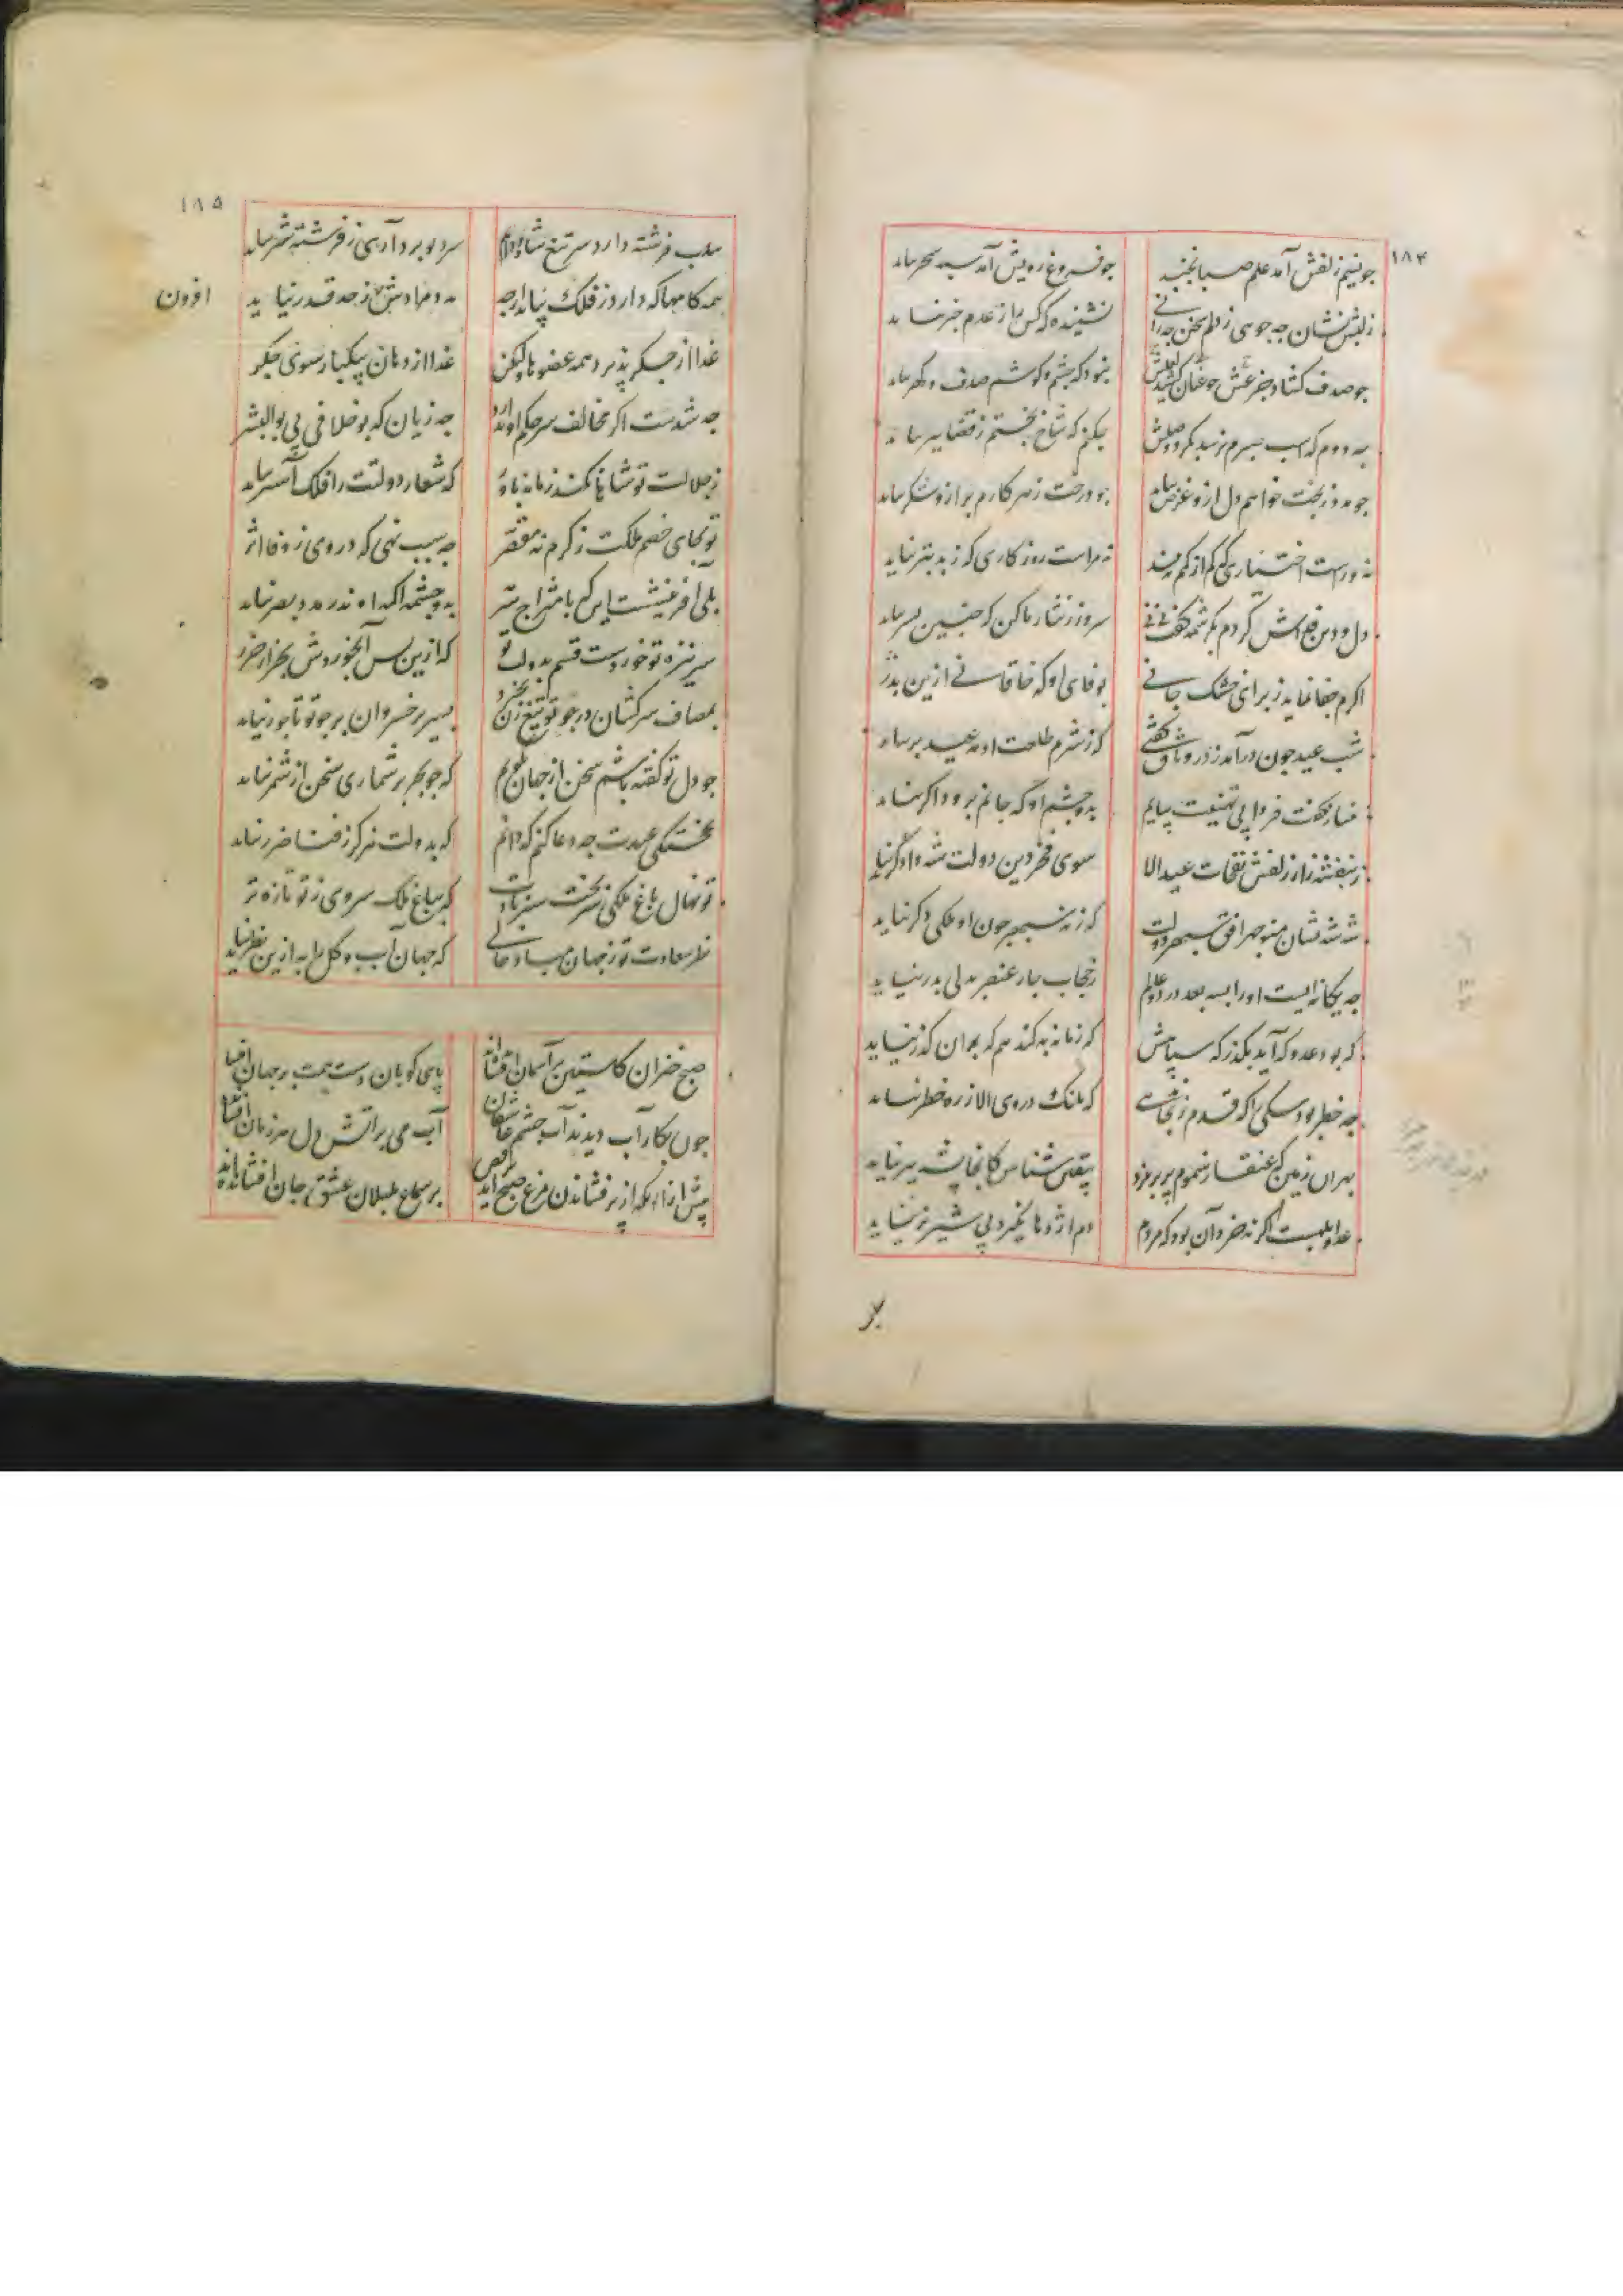 ۱۸۴
چو نسیم زلفش آمد علم صبا نجنبد چو فروغ رویش آمد سپه سحر نیاید
ز لبش نشان چه جویی ز دلم سخن چه رانی نشنیده که کس را ز عدم خبر نیاید
چو صدف گشاد لعلش چو کشید بنمود که چشم و گوشم صدف و گهر نیاید
به دوم که اسب صبرم نرسد بگرد وصلش چکنم که شاخ بختم ز قضا ببر نیاید
چو مه دو ز بخت خواهم دل ازو غرض نیابد چو درخت زهر کارم بر ازو شکر نیاید
نه مراست روز کاری که ز بد بتر نیاید
دل و دین فداش کردم بکرشمه گفت نی نی سر و زر نثار ما کن که چنین بسر نیاید
اگرم جفا نماید ز برای خشک جانی بوفای او که خاقانی ازین بدر
شب عید چون درآمد ز در وثاق گفتی که ز شرم طلعت او مه عید بر نیاید
بگفت فردا پی تهنیت بیایم بدو چشم او که جانم برود اگر نیاید
ز بنفشه زار زلفش نفحات عید الا سوی فخر دین و دولت شه دادگر نیاید
شه شه نشان منوچهر افق سپهر دولت که ز نه سپهر چون او ملکی دگر نیاید
چه یگانه ایست او را بسه بعد در دو عالم ز حجاب چار عنصر بدلی بدر نیاید
که بود عدو که آید بگذر که سپاهش که زمانه به کند هم که بدان گذر نیاید
چه خطر بود سگی را که قدم زند بجایی که پلنگ در وی الا ز ره خطر نیاید
بهر آن زمین که عنقا ز سموم پر بریزد بیقین شناس کانجا پشه بپر نیاید
عدو ابلهست اگر نه خرد آن بود که مردم دم اژدها نگیرد پی شیر نر نیاید
بر
۱۸۵
سلب فرشته دارد سر تیغ شاه و دانم سر دیو برد آری ز فرشته شر نیاید
همه کامها که دارد ز فلک بیابد ارچه مه و ز حد قدر نیاید
افزون
غذا از جگر پذیرد همه عضوها ولیکن غذا از دهان بیکبار سوی جگر
چه شدست اگر مخالف سر حکم او ندارد چه زیان که بوخلافی پی بوالبشر
ز جلالت تو شاها نکند زمانه باور که شعار دولتت را فلک آستر نیاید
تو بجای خصم ملکت ز کرم نه مقصر چه سبب نهی که در وی ز وفا اثر
بلی آفرینشست این که بامتزاج سرمه بدو چشم اکمه اندر مدد بصر نیاید
سر نیزه تو خوردست قسم بدولت تو که ازین پس آبخوردش بجز از خزر
بمصاف سرکشان در چو تو تیغ زن نخیزد بسریر خسروان بر چو تو تاجور نیاید
چو دل تو گفته باشم سخن از جهان نگویم که چو بحر بر شماری سخن از شمر نیاید
بخجستگی عیدت چه دعا کنم که دانم که بدولت تو هرگز ز فنا ضرر نیاید
تو نهال باغ ملکی سر بختت سبز بادت که بباغ ملک سروی ز تو تازه تر
نظر سعادت تو ز جهان مباد خالی که جهان آب و گل را به ازین نظر نیاید
صبح خیزان کاستین بر آسمان افشانده اند پای کوبان دست همت بر جهان افشانده
چون بکار آب دیدند آب چشم عاشقان آب می بر آتش دل هر زمان افشانده
پیش از آن کز پر فشاندن مرغ صبح آید برقص بر سماع بلبلان عشق جان افشانده اند